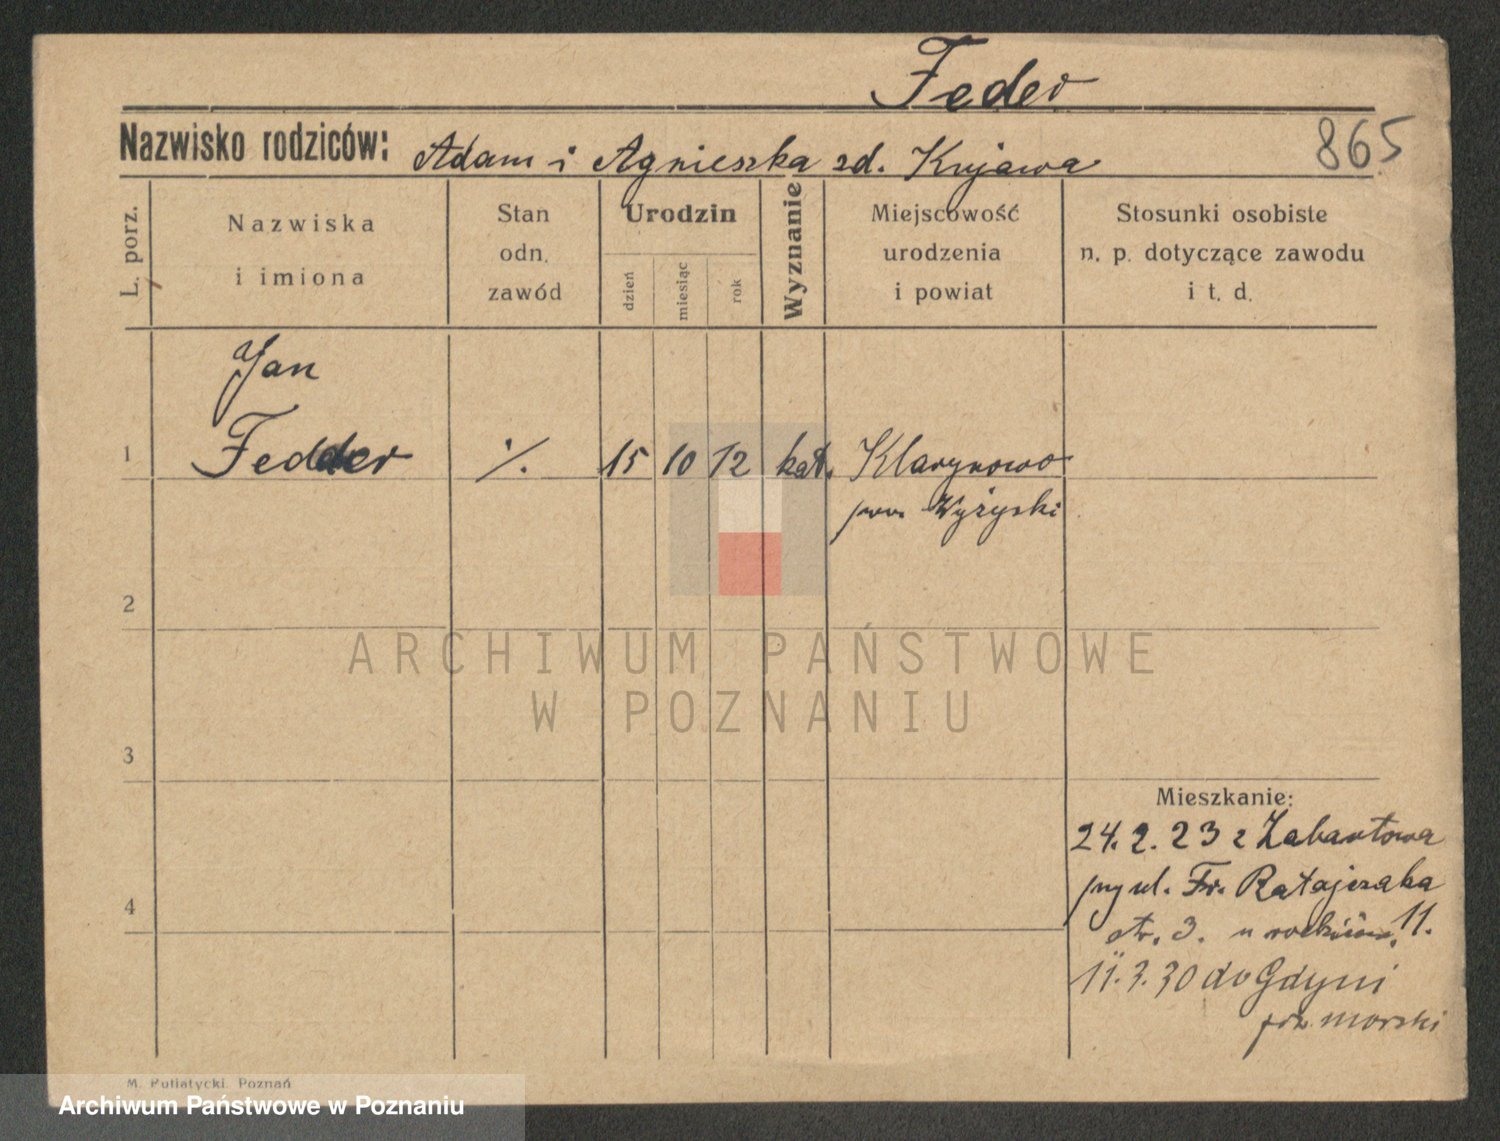 Feder
Nazwisko rodziców: Adam i Agnieszka zd. Kujawa
865
L. porz.
Nazwiska
i imiona
Stan
odn.
zawód
Urodzin
dzień
miesiąc
rok
Wyznanie
Miejscowość
urodzenia
i powiat
Stosunki osobiste
n. p. dotyczące zawodu
i t. d.
Jan
1 Fedder ./. 15 10 12 kat. Klarynowo
pow. Wyżyski
2
ARCHIWUM PAŃSTWOWE
W POZNANIU
3
Mieszkanie:
24. 2. 23 z Zabartowa
przy ul. Fr. Ratajczaka
4
str. 3. u 11.
11. 3. 30 do Gdyni
morski
M. Putiatycki. Poznań
Archiwum Państwowe w Poznaniu